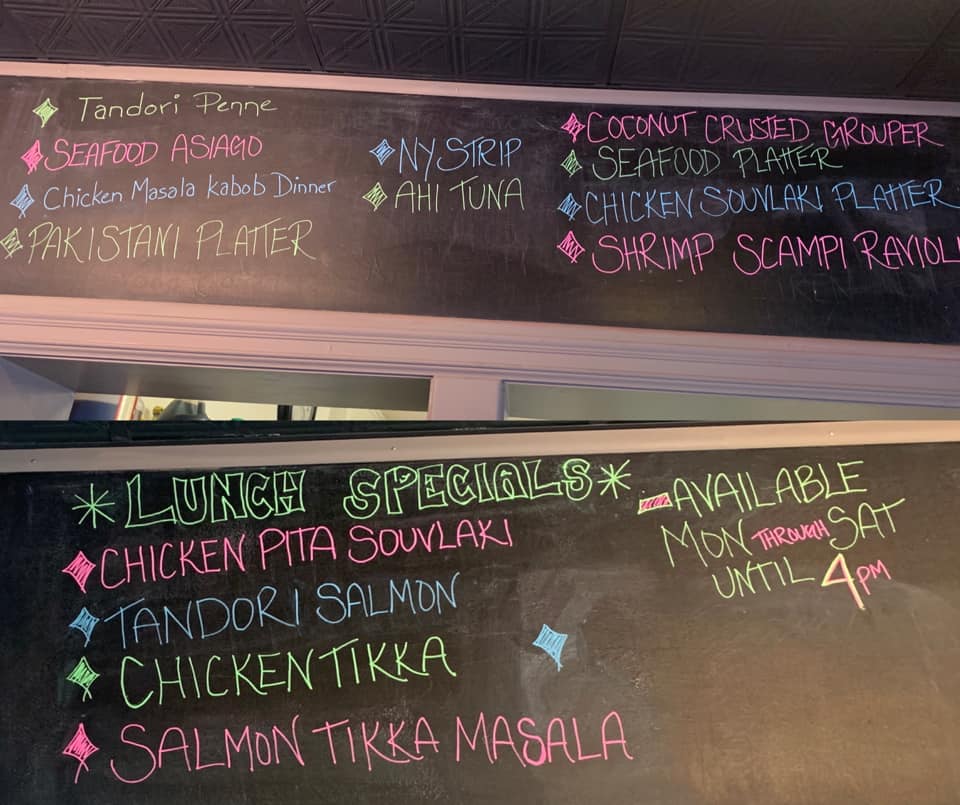 Tandori Penne
SEAFOOD ASIAGO
Chicken Masala kabob Dinner
PAKISTANI PLATTER
NY STRIP
AHI TUNA
COCONUT CRUSTED GROUPER
SEAFOOD PLATTER
CHICKEN SOUVLAKI PLATTER
SHRIMP SCAMPI RAVIOLI
*LUNCH SPECIALS*
CHICKEN PITA SOUVLAKI
TANDORI SALMON
CHICKEN TIKKA
SALMON TIKKA MASALA
-AVAILABLE
MON THROUGH SAT
UNTIL 4PM